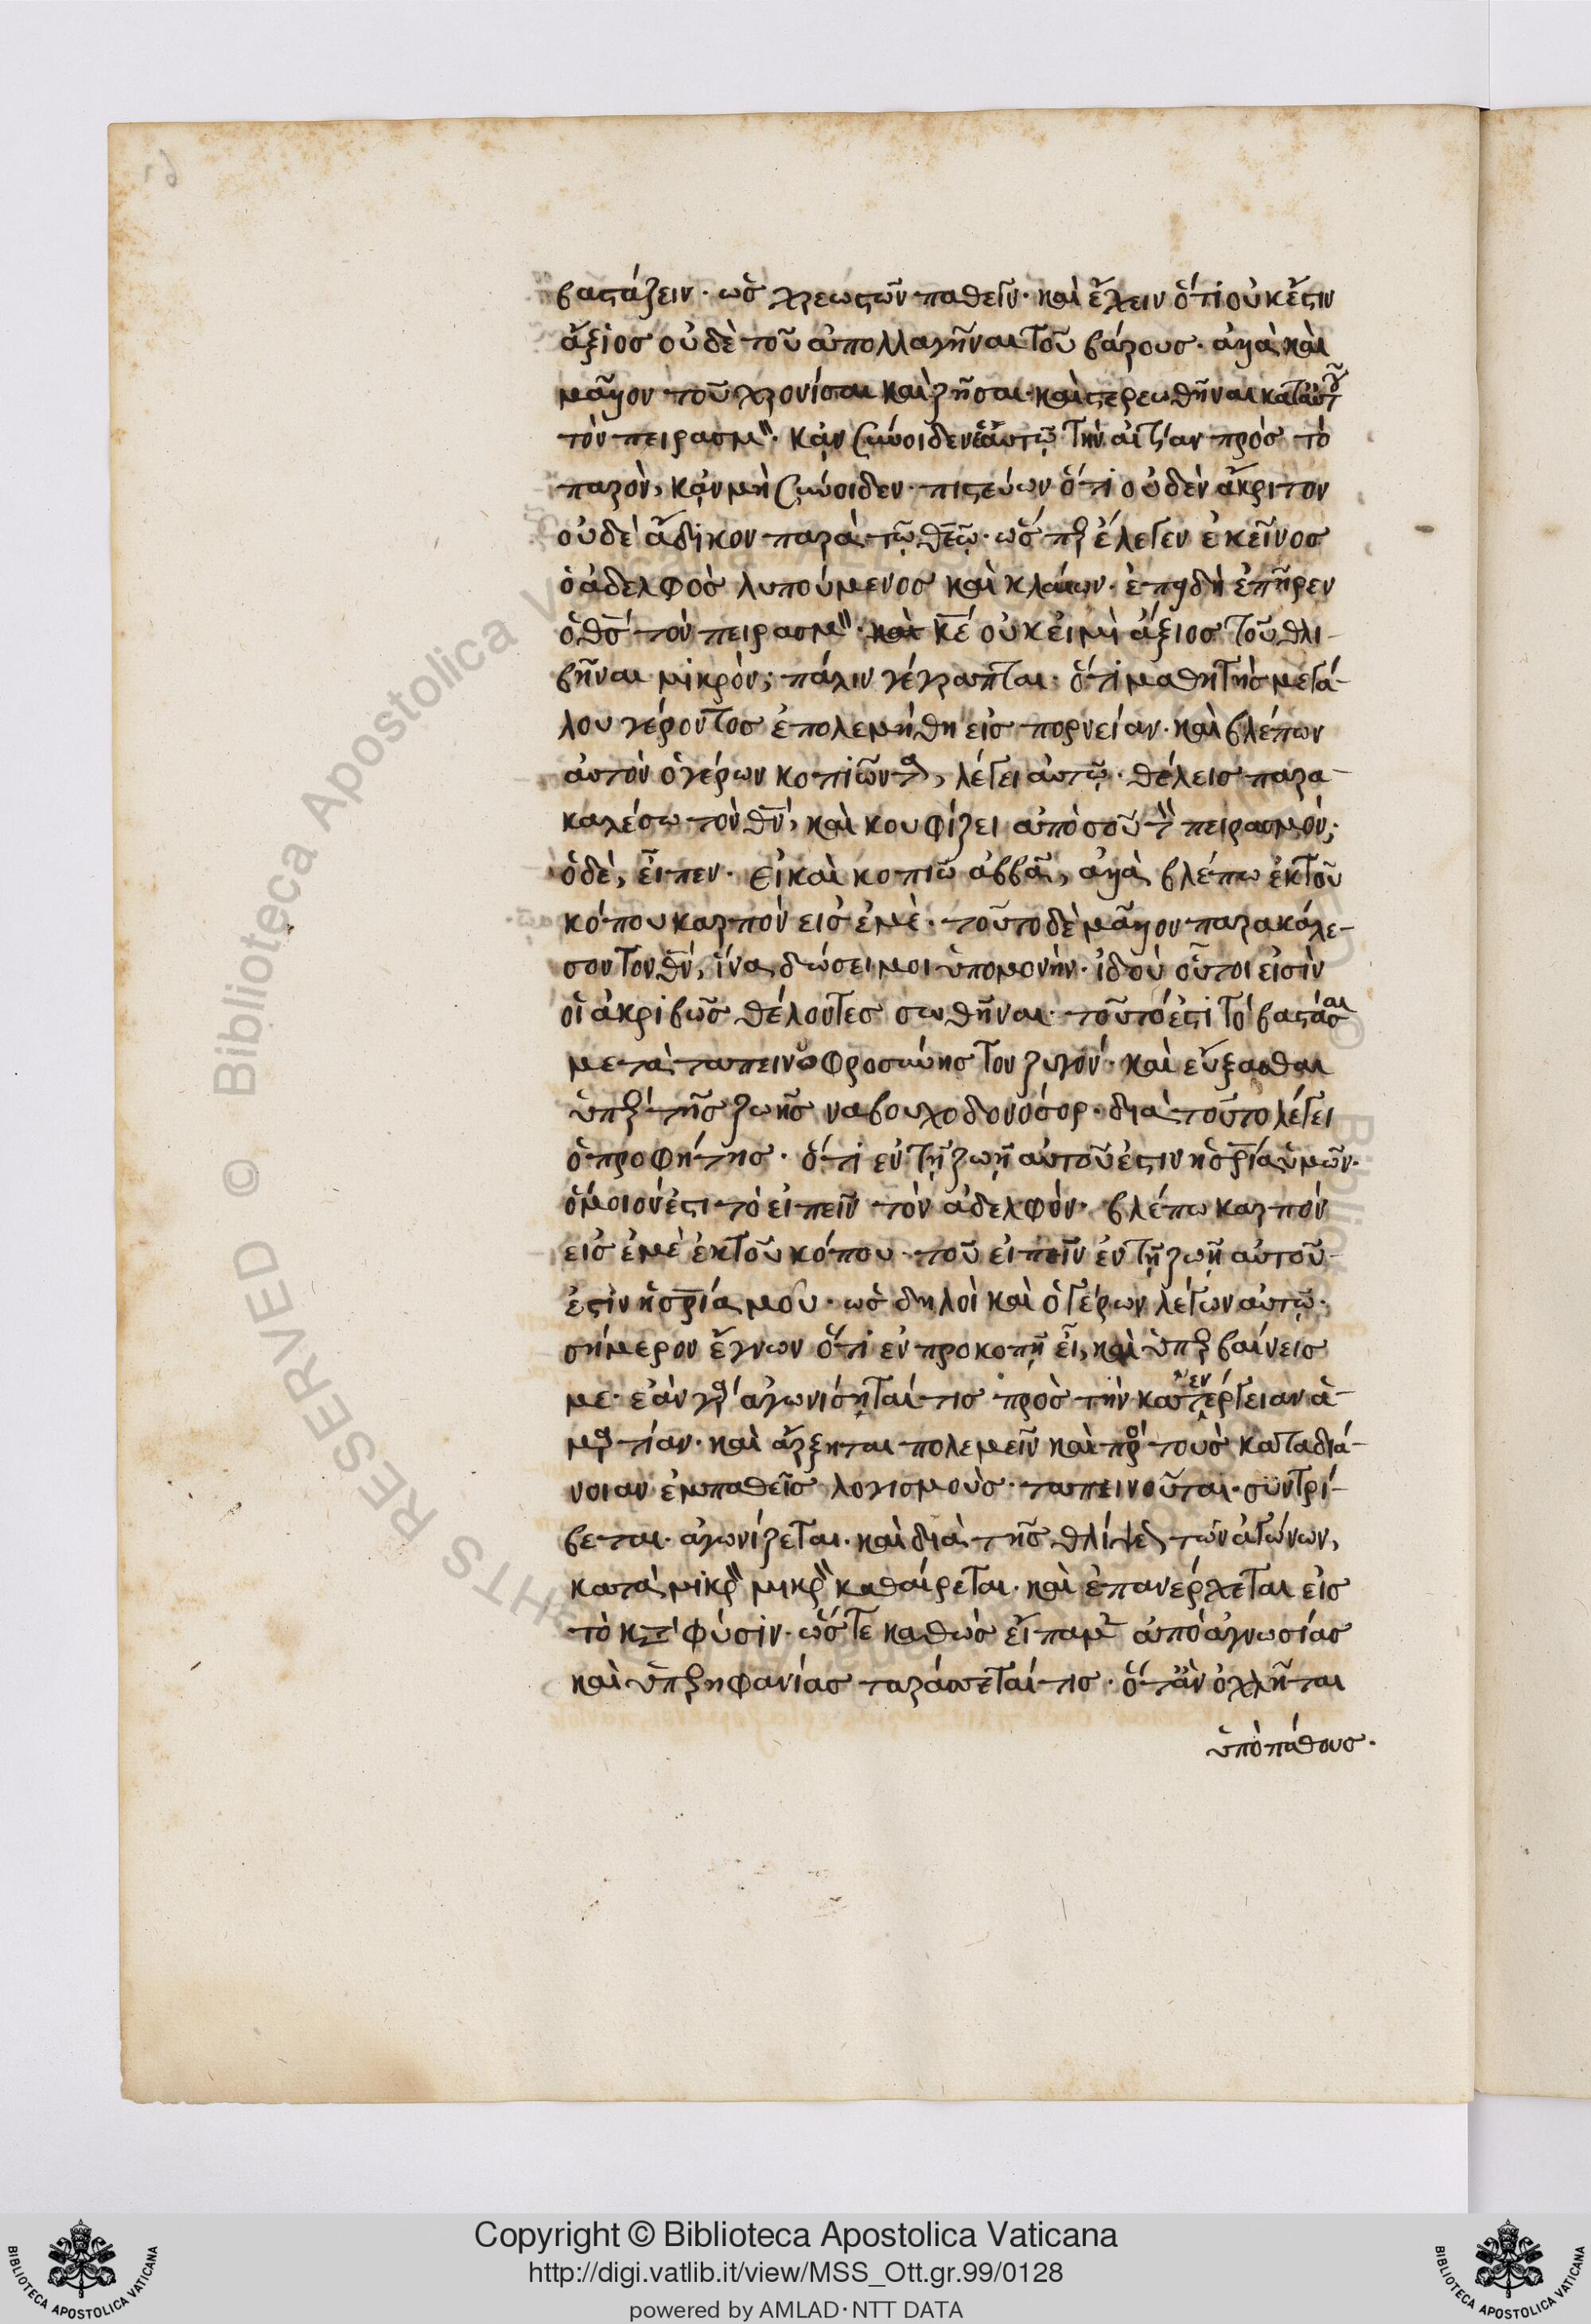 βαστάζειν· ὡς χρεωστῶν παθεῖν· καὶ ἔχειν ὅτι οὐκ ἔστιν
ἄξιος οὐδὲ τοῦ ἀπολλαγῆναι τοῦ βάρους· ἀλλὰ καὶ
μᾶλλον τοῦ χρονίσαι καὶ ζῆσαι· καὶ στερεωθῆναι κατ αὐτοῦ
τὸν πειρασμὸν· κἂν σύνοιδεν ἑαυτῷ τὴν αἰτίαν πρὸς τὸ
παρὸν, κἂν μὴ σύνοιδεν· πιστεύων ὅτι οὐδὲν ἄκριτον
οὐδὲ ἄδικον παρὰ τῷ θεῷ· ὥσπερ ἔλεγεν ἐκεῖνος
ὁ ἀδελφὸς λυπούμενος καὶ κλαίων· ἐπηδὴ ἐπῆρεν
ὁ θς τὸν πειρασμὸν· κέ οὐκ εἰμὶ ἄξιος τοῦ θλι-
βῆναι μικρόν; πάλιν γέγραπται· ὅτι μαθητὴς μεγά-
λου γέροντος ἐπολεμήθη εἰς πορνείαν· καὶ βλέπων
αὐτὸν ὁ γέρων κοπιῶντα, λέγει αὐτῷ· θέλεις παρα-
καλέσω τὸν θν, καὶ κουφίζει ἀπὸ σοῦ τὸν πειρασμόν;
ὁ δὲ, εἶπεν· εἰ καὶ κοπιῶ ἀββᾶ, ἀλλὰ βλέπω ἐκ τοῦ
κόπου καρπὸν εἰς ἐμὲ· τοῦτο δὲ μᾶλλον παρακάλε-
σον τὸν θν, ἵνα δώσει μοι ὑπομονὴν· ἰδοὺ οὗτοι εἰσὶν
οἱ ἀκριβῶς θέλοντες σωθῆναι· τοῦτό ἐστι τὸ βαστάσαι
μετὰ ταπεινοφροσύνης τὸν ζυγόν· καὶ εὔξασθαι
ὑπὲρ τῆς ζωῆς ναβουχοδονόσορ· διὰ τοῦτο λέγει
ὁ προφήτης· ὅτι ἐν τῇ ζωῇ αὐτοῦ ἐστιν ἡ σρία ὑμῶν·
ὅμοιόν ἐστι τὸ εἰπεῖν τὸν ἀδελφὸν· βλέπω καρπὸν
εἰς ἐμὲ ἐκ τοῦ κόπου· τοῦ εἰπεῖν ἐν τῇ ζωῇ αὐτοῦ
ἐστὶν ἡ σρία μου· ὡς δηλοὶ καὶ ὁ γέρων λέγων αὐτῷ·
σήμερον ἔγνων ὅτι ἐν προκοπῇ εἶ, καὶ ὑπερβαίνεις
με· ἐὰν γὰρ ἀγωνίσηταί τις πρὸς τὴν κατ ἐνέργειαν ἁ-
μαρτίαν· καὶ ἄρξηται πολεμεῖν καὶ πρὸς τοὺς κατὰ διά-
νοιαν ἐμπαθεῖς λογισμοὺς· ταπεινοῦται· συντρί-
βεται· ἀγωνίζεται· καὶ διὰ τῆς θλίψεως τῶν ἀγώνων,
κατὰ μικρὸν μικρὸν καθαίρεται· καὶ ἐπανέρχεται εἰς
τὸ κατὰ φύσιν· ὥστε καθὼς εἴπαμεν ἀπὸ ἀγνωσίας
καὶ ὑπερηφανίας ταράσσεταί τις· ὅταν ὀχλῆται
ὑπὸ πάθους·
Copyright © Biblioteca Apostolica Vaticana
http://digi.vatlib.it/view/MSS_Ott.gr.99/0128
powered by AMLAD·NTT DATA